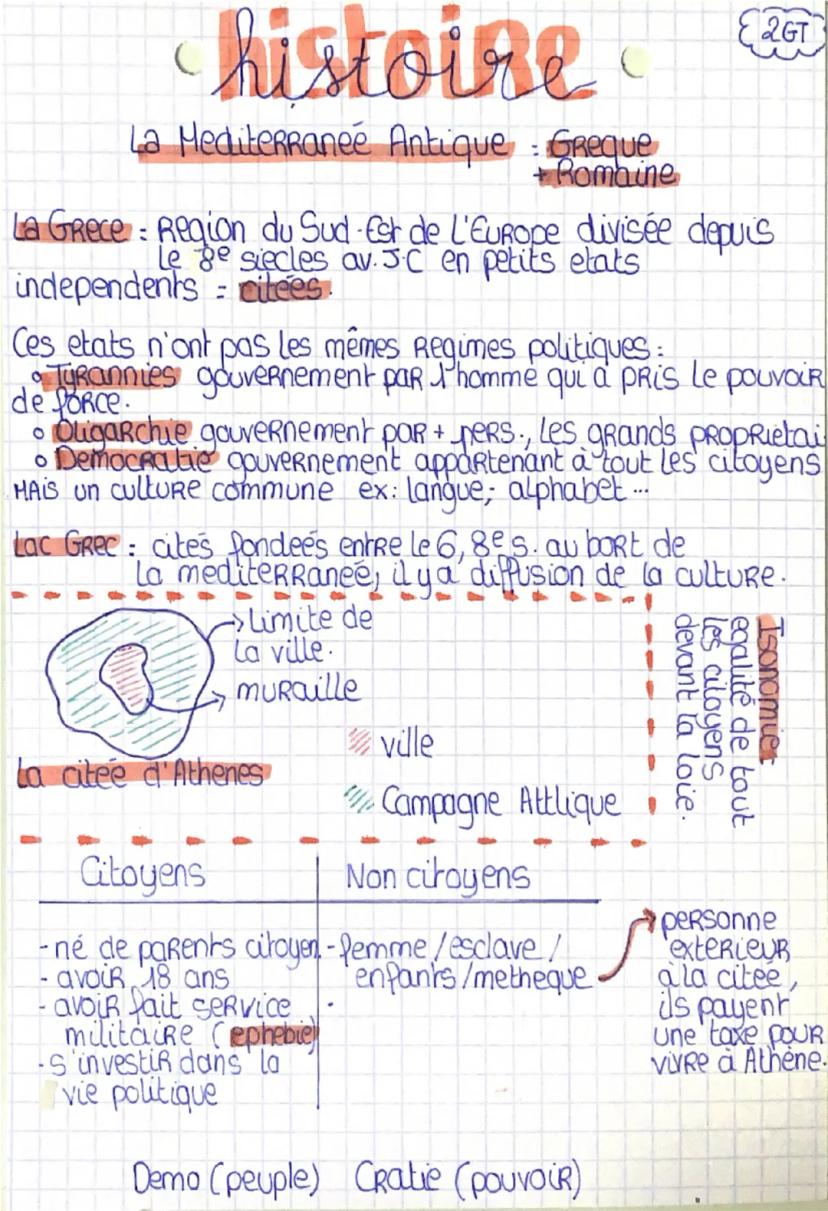 histoire
2GT
La Mediterraneé Antique : Greque
+ Romaine
La Grece : Region du Sud-Est de l'Europe divisée depuis
le 8e siecles av. J-C en petits etats
independents = citées.
Ces etats n'ont pas les mêmes Regimes politiques :
Tyrannies gouvernement par l'homme qui a pris le pouvoir
de force.
Oligarchie gouvernement par + pers., les grands proprietai
Democratie gouvernement appartenant à tout les citoyens
MAIS un culture commune ex: langue, alphabet ...
Lac Grec : cités fondeés entre le 6, 8e s. au bort de
la mediterraneé, il y a diffusion de la culture.
Limite de
la ville.
muraille
ville
La citée d'Athenes
Campagne Attlique
Isonomie
égalité de tout
les citoyens
devant la loie.
Citoyens
Non citoyens
- né de parents citoyen
- avoir 18 ans
- avoir fait service
militaire (ephebie)
- s'investir dans la
vie politique
- femme / esclave /
enfants / metheque
personne
exterieur
à la citée,
ils payent
une taxe pour
vivre à Athène.
Demo (peuple) Cratie (pouvoir)